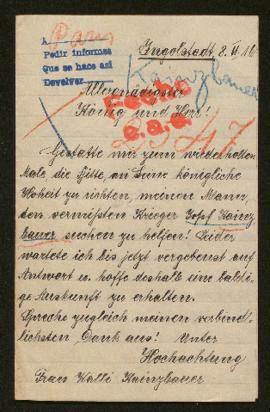 A
Pedir informes
Que se hace así
Devolver
Ingolstadt, 8. VI. 16
Allergnädigster
König und Herr!
Gestatte mir zum wiederholten
Male, die Bitte, an Seine königliche
Hoheit zu richten, meinen Mann,
den vermißten Krieger Josef Kainz
bauer suchen zu helfen! Leider
wartete ich bis jetzt vergebenst auf
Antwort u. hoffe deshalb eine baldi-
ge Auskunft zu erhalten.
Spreche zugleich meinen verbind-
lichsten Dank aus! Unter
Hochachtung
Frau Walli Kainzbauer